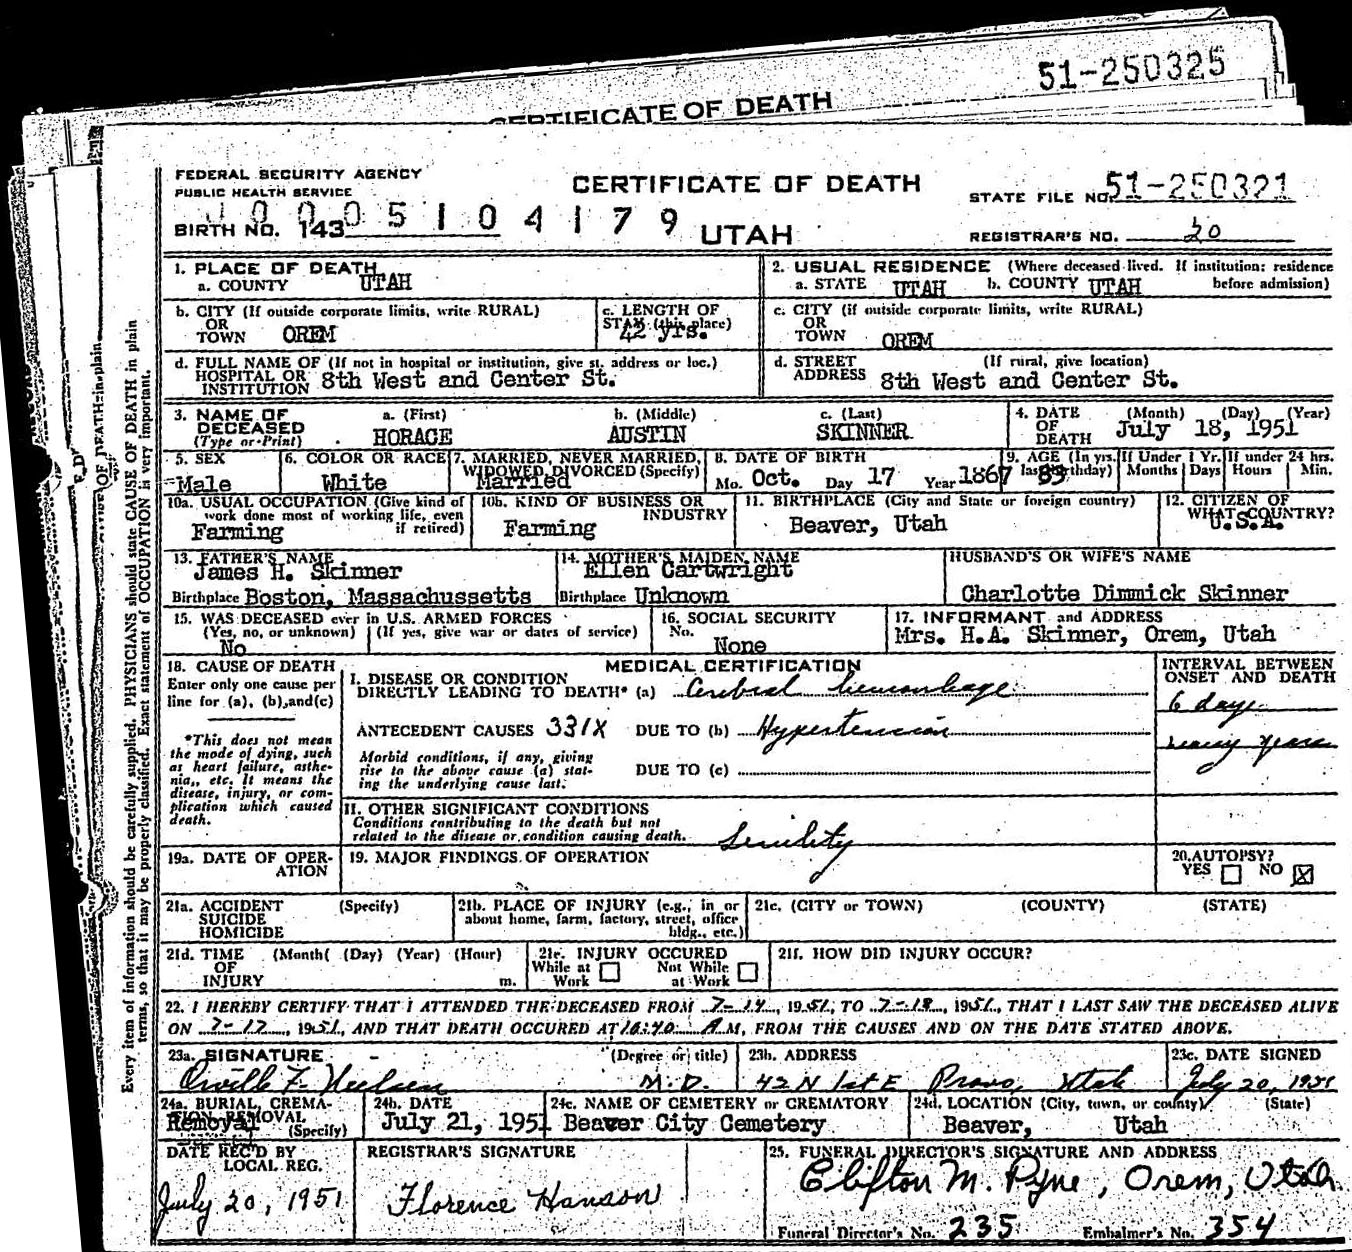 51-250325
CERTIFICATE OF DEATH
FEDERAL SECURITY AGENCY
PUBLIC HEALTH SERVICE
CERTIFICATE OF DEATH
STATE FILE NO. 51-250321
10005104179
BIRTH NO. 143
UTAH
REGISTRAR'S NO. 20
1. PLACE OF DEATH
a. COUNTY UTAH
2. USUAL RESIDENCE (Where deceased lived. If institution: residence before admission)
a. STATE UTAH b. COUNTY UTAH
b. CITY (If outside corporate limits, write RURAL)
OR
TOWN OREM
c. LENGTH OF
STAY (this place)
42 yrs.
c. CITY (if outside corporate limits, write RURAL)
OR
TOWN OREM
d. FULL NAME OF (If not in hospital or institution, give st. address or loc.)
HOSPITAL OR
INSTITUTION 8th West and Center St.
d. STREET (If rural, give location)
ADDRESS 8th West and Center St.
3. NAME OF DECEASED
(Type or Print)
a. (First) b. (Middle) c. (Last)
HORACE AUSTIN SKINNER
4. DATE OF DEATH (Month) (Day) (Year)
July 18, 1951
5. SEX
Male
6. COLOR OR RACE
White
7. MARRIED, NEVER MARRIED,
WIDOWED, DIVORCED (Specify)
Married
8. DATE OF BIRTH
Mo. Oct. Day 17 Year 1867
9. AGE (In yrs. last birthday) 83
If Under 1 Yr. Months Days
If under 24 hrs. Hours Min.
10a. USUAL OCCUPATION (Give kind of
work done most of working life, even
if retired)
Farming
10b. KIND OF BUSINESS OR
INDUSTRY
Farming
11. BIRTHPLACE (City and State or foreign country)
Beaver, Utah
12. CITIZEN OF
WHAT COUNTRY?
U.S.A.
13. FATHER'S NAME
James H. Skinner
Birthplace Boston, Massachussetts
14. MOTHER'S MAIDEN NAME
Ellen Cartwright
Birthplace Unknown
HUSBAND'S OR WIFE'S NAME
Charlotte Dimmick Skinner
15. WAS DECEASED ever in U.S. ARMED FORCES
(Yes, no, or unknown) (If yes, give war or dates of service)
No
16. SOCIAL SECURITY
No.
None
17. INFORMANT and ADDRESS
Mrs. H.A. Skinner, Orem, Utah
18. CAUSE OF DEATH
Enter only one cause per
line for (a), (b), and (c)
*This does not mean
the mode of dying, such
as heart failure, asthe-
nia, etc. It means the
disease, injury, or com-
plication which caused
death.
MEDICAL CERTIFICATION
I. DISEASE OR CONDITION
DIRECTLY LEADING TO DEATH* (a) Cerebral hemorrhage
ANTECEDENT CAUSES 331X DUE TO (b) Hypertension
Morbid conditions, if any, giving
rise to the above cause (a) stat-
ing the underlying cause last.
DUE TO (c)
INTERVAL BETWEEN
ONSET AND DEATH
6 days
many years
II. OTHER SIGNIFICANT CONDITIONS
Conditions contributing to the death but not
related to the disease or condition causing death.
Senility
19a. DATE OF OPER-
ATION
19. MAJOR FINDINGS OF OPERATION
20. AUTOPSY?
YES NO
21a. ACCIDENT (Specify)
SUICIDE
HOMICIDE
21b. PLACE OF INJURY (e.g., in or
about home, farm, factory, street, office
bldg., etc.)
21c. (CITY or TOWN) (COUNTY) (STATE)
21d. TIME (Month( (Day) (Year) (Hour)
OF
INJURY m.
21e. INJURY OCCURED
While at Work Not While at Work
21f. HOW DID INJURY OCCUR?
22. I HEREBY CERTIFY THAT I ATTENDED THE DECEASED FROM 7-14, 1951, TO 7-18, 1951, THAT I LAST SAW THE DECEASED ALIVE
ON 7-17, 1951, AND THAT DEATH OCCURED AT 10:40 A M, FROM THE CAUSES AND ON THE DATE STATED ABOVE.
23a. SIGNATURE (Degree or title)
Orville F. Neelsen M.D.
23b. ADDRESS
42 N 1st E Provo, Utah
23c. DATE SIGNED
July 20, 1951
24a. BURIAL, CREMA-
TION, REMOVAL
(Specify)
Removal
24b. DATE
July 21, 1951
24c. NAME OF CEMETERY or CREMATORY
Beaver City Cemetery
24d. LOCATION (City, town, or county) (State)
Beaver, Utah
DATE REC'D BY
LOCAL REG.
July 20, 1951
REGISTRAR'S SIGNATURE
Florence Hanson
25. FUNERAL DIRECTOR'S SIGNATURE AND ADDRESS
Clifton M. Pyne, Orem, Utah
Funeral Director's No. 235 Embalmer's No. 354
Every item of information should be carefully supplied. PHYSICIANS should state CAUSE OF DEATH in plain
terms, so that it may be properly classified. Exact statement of OCCUPATION is very important.
OF DEATH in plain